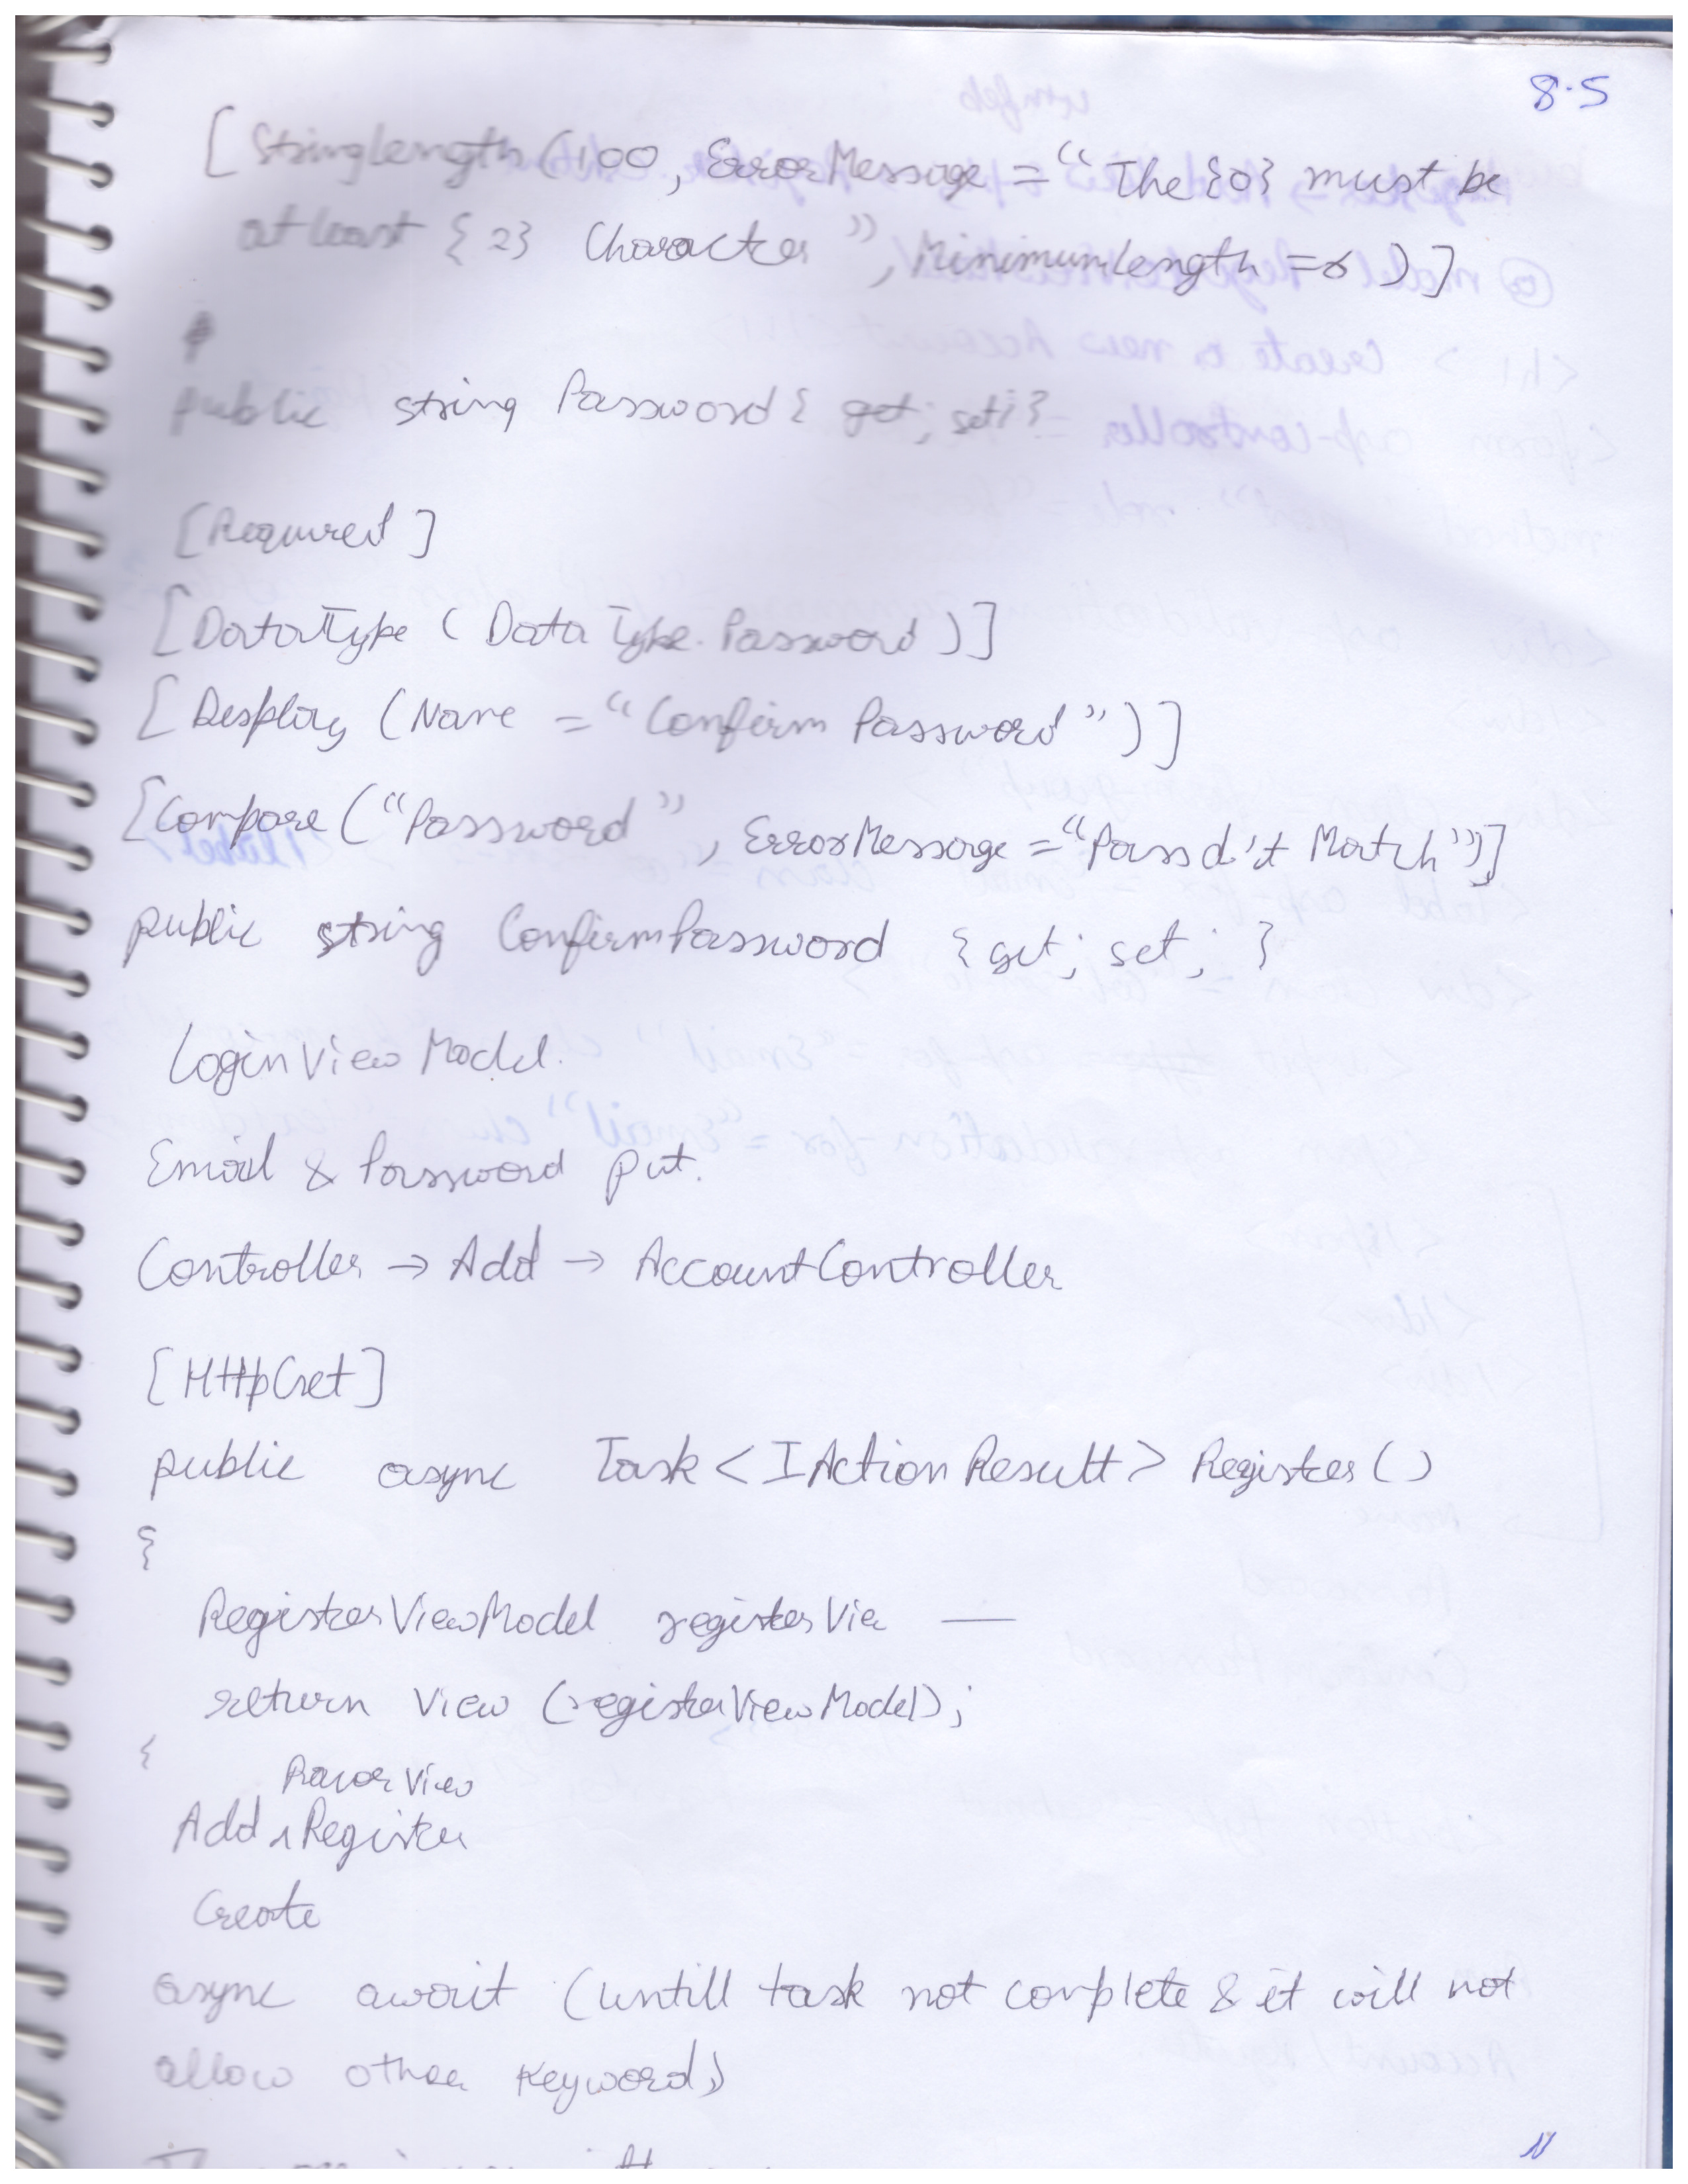 8.5
[StringLength(100, ErrorMessage = “The {0} must be
atleast {2} Character”, MinimumLength = 6)]
public string Password { get; set; }
[Required]
[DataType (DataType.Password)]
[Display (Name = “Confirm Password”)]
[Compare (“Password”, ErrorMessage = “Pass d't Match”)]
public string ConfirmPassword { get; set; }
LoginViewModel.
Email & Password put.
Controller → Add → AccountController
[HttpGet]
public async Task<IActionResult> Register()
{
RegisterViewModel registerVie —
return View (registerViewModel);
{
Razor View
Add ^ Register
Create
async await (untill task not complete & it will not
allow other keyword)